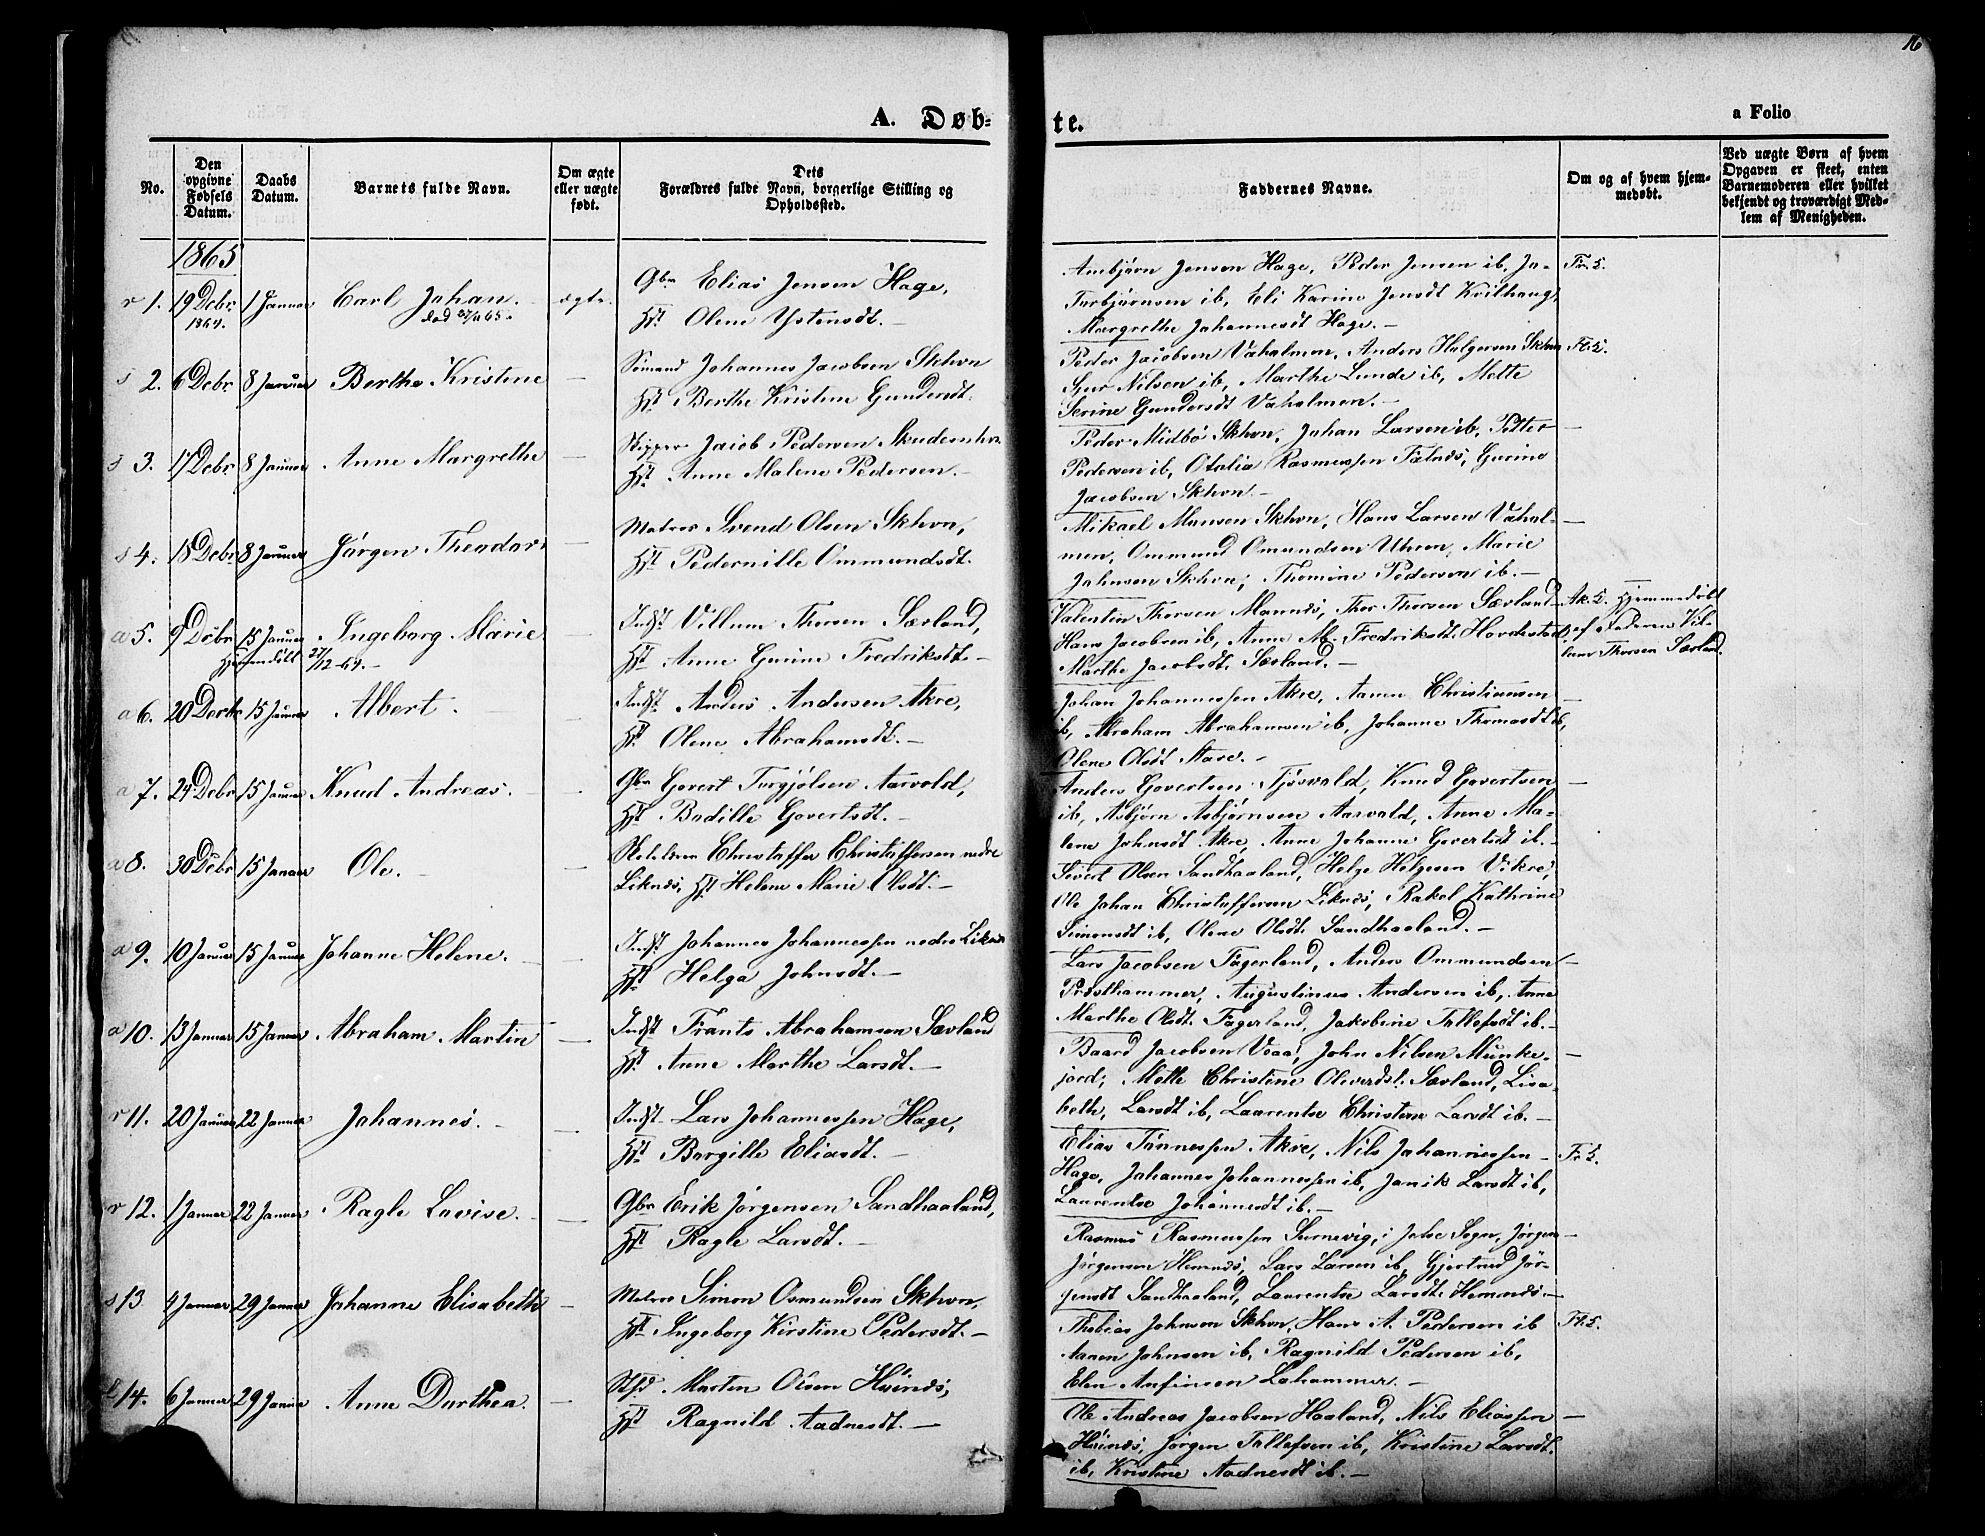 16
A. Døb-
te.
a Folio
No.
Den opgivne Fødsels Datum.
Daabs Datum.
Barnets fulde Navn.
Om ægte eller uægte født.
Dets Forældres fulde Navn, borgerlige Stilling og Opholdssted.
Faddernes Navne.
Om og af hvem hjemmedøbt.
Ved uægte Børn af hvem Opgaven er skeet, enten Barnemoderen eller hvilket bekjendt og troværdigt Medlem af Menigheden.
1865
r 1. 19 Debr 1864. 1 Januar Carl Johan. ægte.
Gbr Elias Jensen Hage,
Hst Olene Ystensdt. —
Jensen Hage, Peder Jensen ib, Ja-
Torbjørnsen ib, Eli Karine Jensdt
Margrethe Johannesdt Hage. —
s 2. 6 Debr 8 Januar Berthe Kristine —
Sömand Johannes Jacobsen Skhvn
Hst Berthe Kristine Gundersdt.
Peder Jacobsen Vaholmen, Anders Helgesen Skhvn
Nilsen ib, Marthe Lunde ib, Mette
Serine Gundersdt Vaholmen. —
s 3. 17 Debr 8 Januar Anne Margrethe —
Skipper Jacob Pedersen
Hst Anne Malene Pedersen. —
Peder Midbö Skhvn, Johan Larsen ib, Petter —
Pedersen ib, Otalia Rasmussen Falnæs, Gurine
Jacobsen Skhvn. —
s 4. 18 Debr 8 Januar Jørgen Theodor —
Matros Svend Olsen Skhvn,
Hst Pedernille Ommundsdt.
Mikael Monsen Skhvn, Hans Larsen Vahol- —
men, Ommund Omundsen Uhren, Marie
Johnsen Skhvn, Thomine Pedersen ib. —
a 5. 9 Debr 15 Januar Ingeborg Marie —
Hjemmedöbt 27/12 64. —
Indst Villum Thorsen Sævland,
Hst Anne Gurine Fredriksdt. —
Valentin Thorsen Mannes, Thor Thorsen Sævland Hjemmedöbt
Hans Jacobsen ib, Anne M. Fredriksdt af Faderen Vil-
Marthe Jacobsdt Sævland. — lum Thorsen Sævland.
a 6. 20 Debr 15 Januar Albert. —
Indst Anders Andersen Akre,
Hst Olene Abrahamsdt. —
Johan Johannessen Akre, Aanen Christiansen —
ib, Abraham Abrahamsen ib, Johanne Thomasdt ib,
Olene Olsdt Stave. —
a 7. 24 Debr 15 Januar Knud Andreas. —
Gbr Govert Torgjølsen Aarvold,
Hst Bodille Govertsdt. —
Anders Govertsen Tjøsvold, Knud Govertsen —
ib, Asbjørn Asbjørnsen Aarvold, Anne Ma-
lene Johnsdt Akre, Anne Johanne Govertsdt ib. —
a 8. 30 Debr 15 Januar Ole. —
Christoffer Christoffersen nedre
Liknes, Hst Helene Marie Olsdt. —
Sivert Olsen Sandhaaland, Helge Helgesen Vikre,
Ole Johan Christoffersen Liknes, Rakel Kathrine
Simonsdt ib, Olene Olsdt Sandhaaland. —
a 9. 10 Januar 15 Januar Johanne Helene. —
Indst Johannes Johannessen nedre Liknes
Hst Helga Johnsdt. —
Lars Jacobsen Fagerland, Anders Ommundsen —
Præsthammer, Augustinus Andersen ib, Anne
Marthe Olsdt Fagerland, Jakobine Tollefsdt ib. —
a 10. 13 Januar 15 Januar Abraham Martin —
Indst Frants Abrahamsen Sævland
Hst Anne Marthe Larsdt. —
Baard Jacobsen Veaa, John Nilsen Munke- —
jord, Mette Christine Sævland, Lisa-
beth Larsdt ib, Laurentse Christine Larsdt ib. —
r 11. 20 Januar 22 Januar Johannes. —
Indst Lars Johannessen Hage,
Hst Borgille Eliasdt. —
Elias Tönnessen Akre, Nils Johannessen —
Hage, Johannes Johannessen ib, Janik Larsdt ib,
Laurentse Johannesdt ib. —
r 12. 1 Januar 22 Januar Ragle Lovise. —
Gbr Erik Jørgensen Sandhaaland,
Hst Ragle Larsdt. —
Rasmus Rasmussen i Sogn, Jørgen —
Jørgensen Hemnes, Lars Larsen ib, Gjertrud Jör-
gensdt Sandhaaland, Laurentse Larsdt Hemnes. —
s 13. 4 Januar 29 Januar Johanne Elisabeth —
Matros Simon Osmundsen Skhvn,
Hst Ingeborg Kirstine Pedersdt. —
Thobias Johnsen Skhvn, Hans A. Pedersen ib
Aanen Johnsen ib, Ragnild Pedersen ib,
Elen Anfinsen Lahammer. —
14. 6 Januar 29 Januar Anne Dorthea. —
Morten Olsen
Hst Ragnild Aadnesdt. —
Ole Andreas Jacobsen Haaland, Nils Eliassen —
Jørgen Tollefsen ib, Kristine Larsdt.
ib, Kristine Aadnesdt ib. —